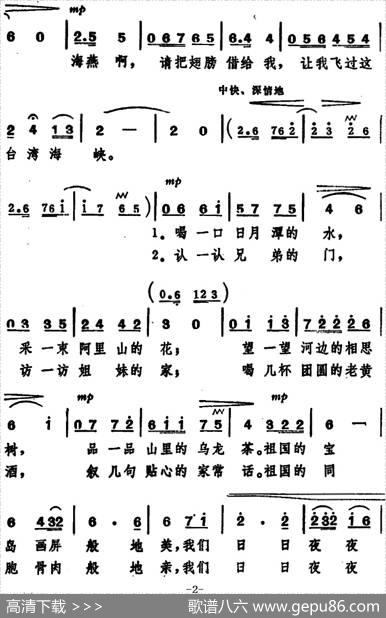 mp mp
6 0 | 2.5 5 | 0 6 7 6 5 | 6.4 4 | 0 5 6 4 5 4 |
海燕啊， 请把翅膀 借给我， 让我飞过这
中快、深情地
2 4 1 3 | 2 — | 2 0 | (2.6 7 6 2 | 2 3 2 6 |
台湾海 峡。
mp
2.6 7 6 i | i 7 6 5) | 0 6 6 i | 5 7 7 5 | 4 6 |
1. 喝一口 日月潭的 水，
2. 认一认 兄弟的 门，
(0.6 1 2 3)
0 3 3 5 | 2 4 4 2 | 3 0 | 0 i i 2 | 7 2 2 2 6 |
采一束 阿里山的 花； 望一望 河边的相思
访一访 姐妹的 家； 喝几杯 团圆的老黄
mp mp
6 i | 0 7 7 2 | 6 i i 7 5 | 4 3 2 2 | 6 — |
树， 品一品 山里的乌龙 茶。祖国的 宝
酒， 叙几句 贴心的家常 话。祖国的 同
6 4 3 2 | 6 . 6 | 6 6 7 i | 2 . 2 | 2 3 2 i 6 |
岛 画屏 般 地 美，我们 日 日 夜 夜
胞 骨肉 般 地 亲，我们 日 日 夜 夜
-2-
高清下载 >>> 歌谱八六 www.gepu86.com